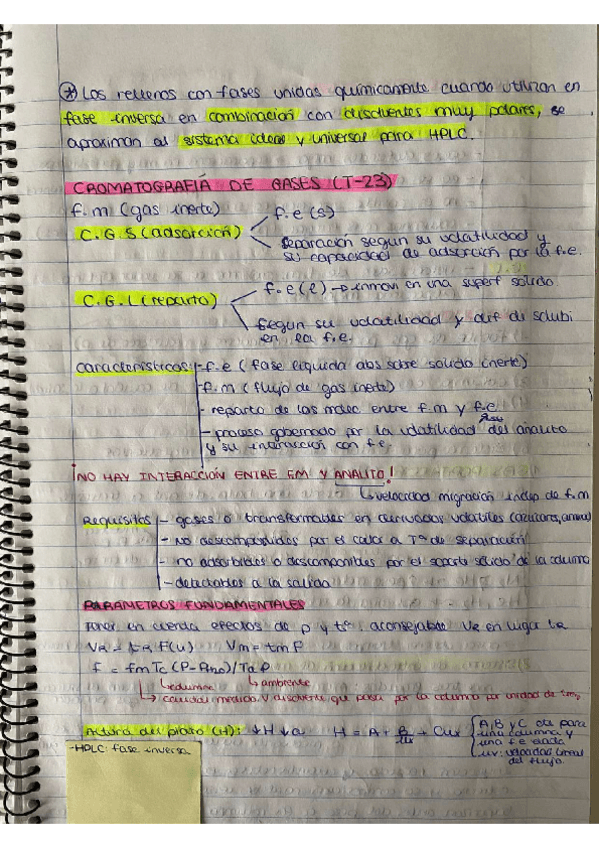 ⊛ Los rellenos con fases unidas químicamente cuando utilizan en
fase inversa en combinación con disolventes muy polares, se
aproximan al sistema ideal y universal para HPLC.
CROMATOGRAFÍA DE GASES (T-23)
f.m (gas inerte)
f.e (s)
C.G.S (adsorción)
Separación según su volatilidad y
su capacidad de adsorción por la f.e.
f.e (l) → inmovi en una superf sólida.
C.G.L (reparto)
Según su volatilidad y dif de solubi
en la f.e.
Características
- f.e (fase líquida abs sobre sólido inerte)
- f.m (flujo de gas inerte)
- reparto de las molec entre f.m y f.e
- proceso gobernado por la volatilidad del analito
y su interacción con f.e.
¡NO HAY INTERACCIÓN ENTRE F.M Y ANALITO!
↳ velocidad migración indep de f.m
Requisitos
- gases o transformables en derivados volátiles
- No descompuestos por el calor a Tª de separación
- no adsorbidos o descomponibles por el soporte sólido de la columna
- detectarlos a la salida
PARÁMETROS FUNDAMENTALES
Tener en cuenta efectos de p y tª. aconsejable VR en lugar tR
VR = tR F(u) Vm = tm F
f = fm Tc (P - PH2O) / Ta P
↳ columna ↳ ambiente
↳ caudal medido. V disolvente que pasa por la columna por unidad de tiemp
Altura del plato (H): ↓H ↓a H = A + B/ux + Cux
A, B y C cte para
una columna y
una f.e dada
ux: velocidad lineal
del flujo.
-HPLC: fase inversa